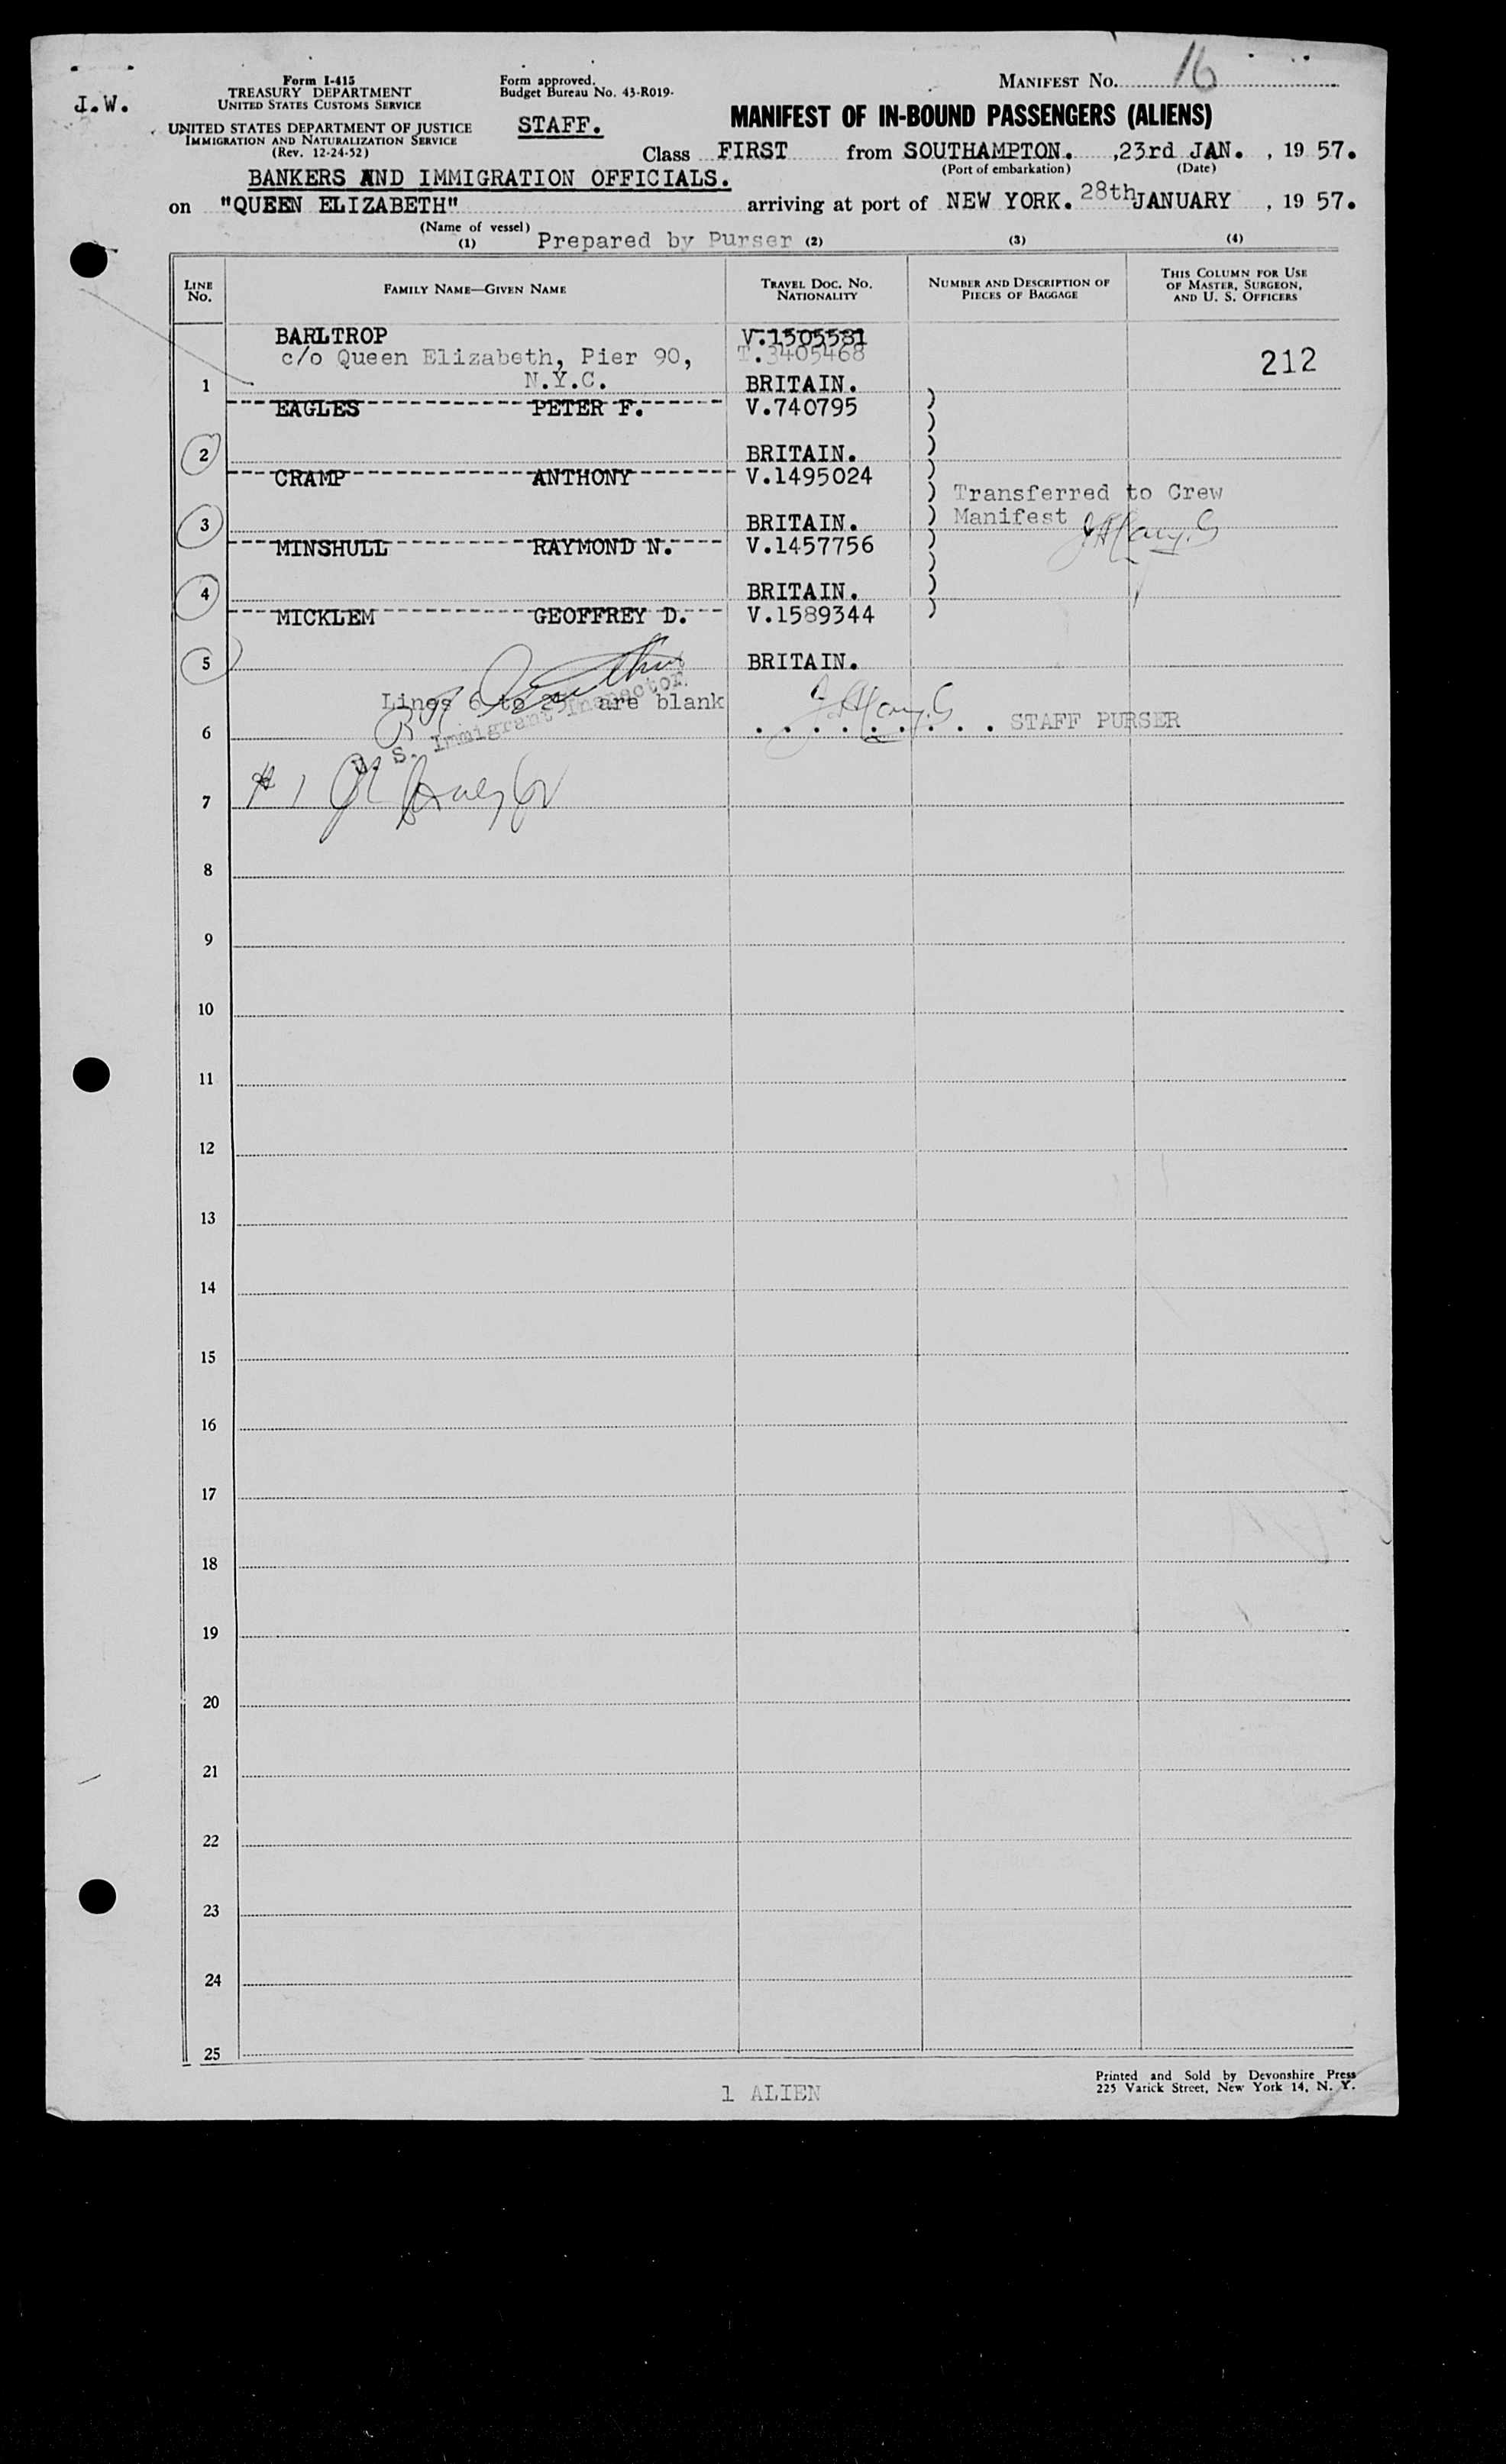 MANIFEST NO. 16
Form I-415
TREASURY DEPARTMENT
UNITED STATES CUSTOMS SERVICE
Form approved.
Budget Bureau No. 43-R019-
J.W.
UNITED STATES DEPARTMENT OF JUSTICE
IMMIGRATION AND NATURALIZATION SERVICE
(Rev. 12-24-52)
STAFF.
MANIFEST OF IN-BOUND PASSENGERS (ALIENS)
Class FIRST from SOUTHAMPTON. ,23rd JAN. , 19 57.
(Port of embarkation) (Date)
BANKERS AND IMMIGRATION OFFICIALS.
on "QUEEN ELIZABETH" arriving at port of NEW YORK. 28th JANUARY , 19 57.
(Name of vessel)
(1) Prepared by Purser (2) (3) (4)
LINE NO. FAMILY NAME—GIVEN NAME TRAVEL DOC. NO. NATIONALITY NUMBER AND DESCRIPTION OF PIECES OF BAGGAGE THIS COLUMN FOR USE OF MASTER, SURGEON, AND U. S. OFFICERS
BARLTROP V.1505581
c/o Queen Elizabeth, Pier 90, T.3405468 212
1 N.Y.C. BRITAIN.
EAGLES PETER F. V.740795
2 BRITAIN.
CRAMP ANTHONY V.1495024
Transferred to Crew
3 BRITAIN. Manifest
MINSHULL RAYMOND N. V.1457756
4 BRITAIN.
MICKLEM GEOFFREY D. V.1589344
5 BRITAIN.
Lines 6 to 25 are blank
U. S. Immigrant Inspector
6 . . . . . . . . . STAFF PURSER
7 # 1
8
9
10
11
12
13
14
15
16
17
18
19
20
21
22
23
24
25
1 ALIEN
Printed and Sold by Devonshire Press
225 Varick Street, New York 14, N. Y.